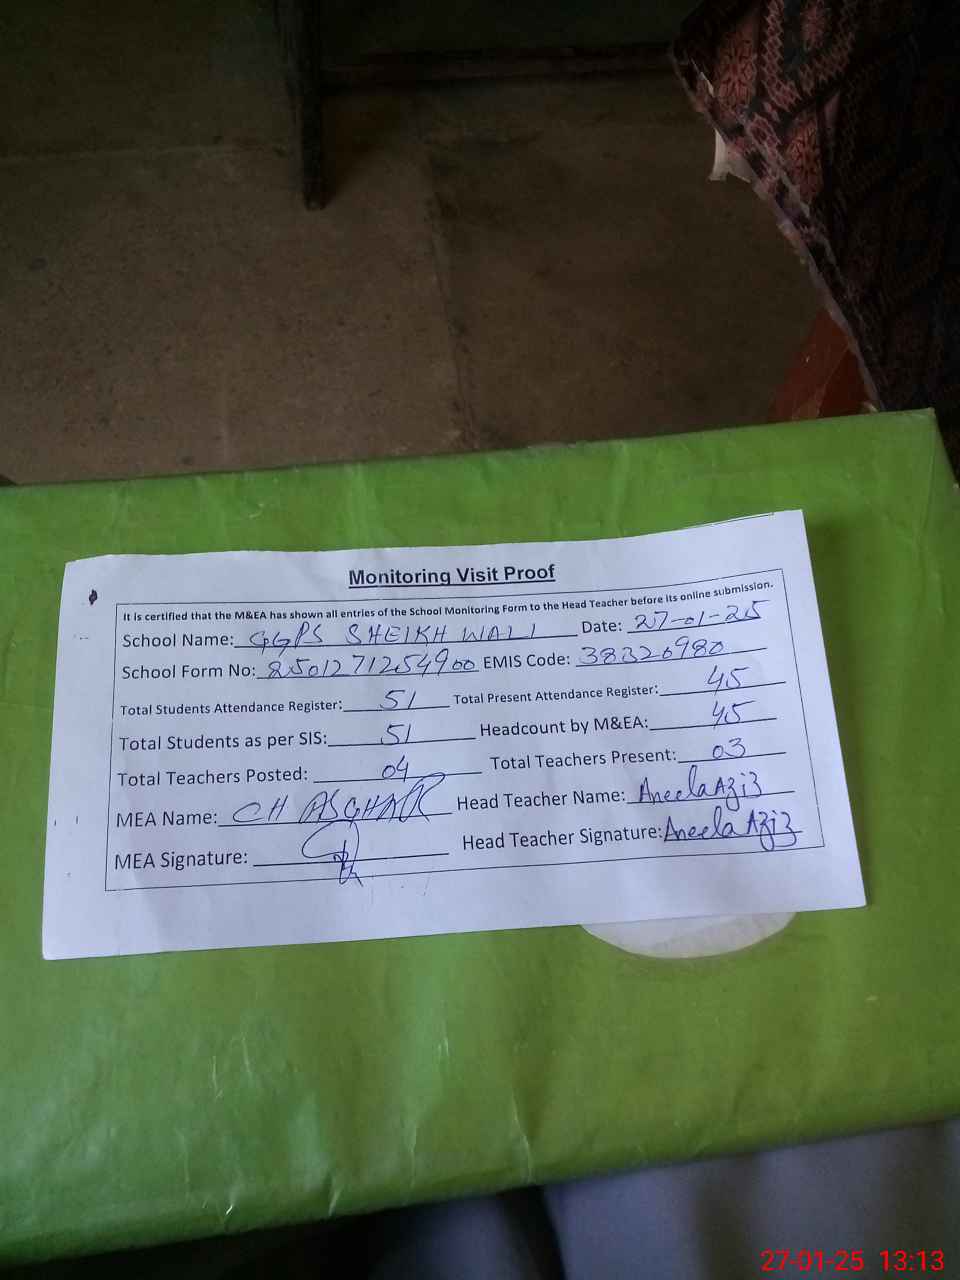 Monitoring Visit Proof
It is certified that the M&EA has shown all entries of the School Monitoring Form to the Head Teacher before its online submission.
School Name: GGPS SHEIKH WALI Date: 27-01-25
School Form No: 2501271254900 EMIS Code: 38320980
Total Students Attendance Register: 51 Total Present Attendance Register: 45
Total Students as per SIS: 51 Headcount by M&EA: 45
Total Teachers Posted: 04 Total Teachers Present: 03
MEA Name: CH ASGHAR Head Teacher Name: Aneela Aziz
MEA Signature: Head Teacher Signature: Aneela Aziz
27-01-25 13:13